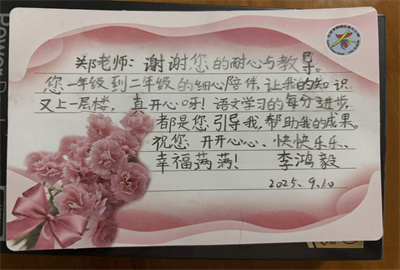 郑老师：谢谢您的耐心与教导。
您一年级到二年级的细心陪伴，让我的知识
又上一层楼，真开心呀！语文学习的每分进步
都是您引导我，帮助我的成果。
祝您 开开心心、快快乐乐、
幸福满满！ 李鸿毅
2025.9.10